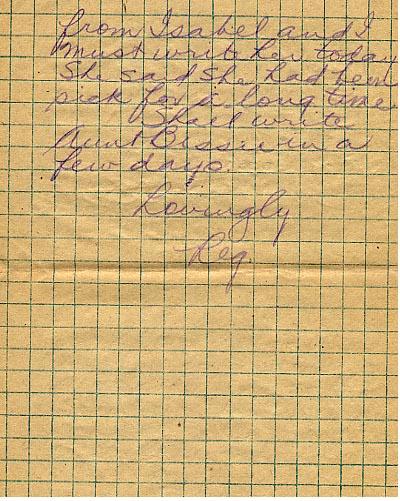 from Isabel and I
must write her today
She said she had been
sick for a long time
Shall write
Aunt Bessie in a
few days.
Lovingly
Reg.